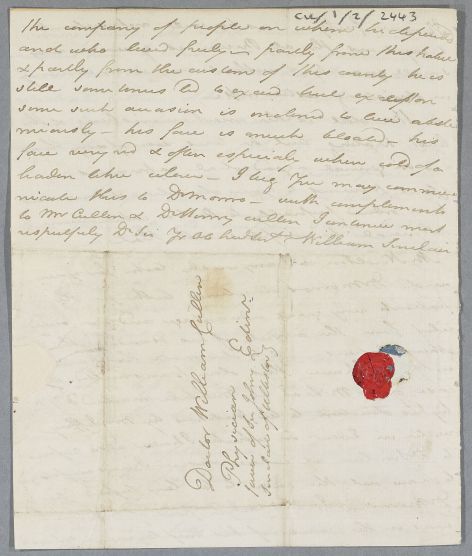 cul/1/2/2443
the company of people on whom he depends
and who lived freely – partly from this habit
& partly from the custom of this county he is
still sometimes led to exceed but except on
some such occasion is inclined to live abste
miously – his face is much bloated – his
face very red & often especially when cold of a
leaden like colour – I beg you may commu
nicate this to Dr Monro – with compliments
to Mrs Cullen & Dr Henry Cullen I continue most
respectfully Dr Sir Yr Ob hu Sert William Sinclair
Doctor William Cullen
Physician
favor of Sir John Edinr.
Sinclair of Ulbster